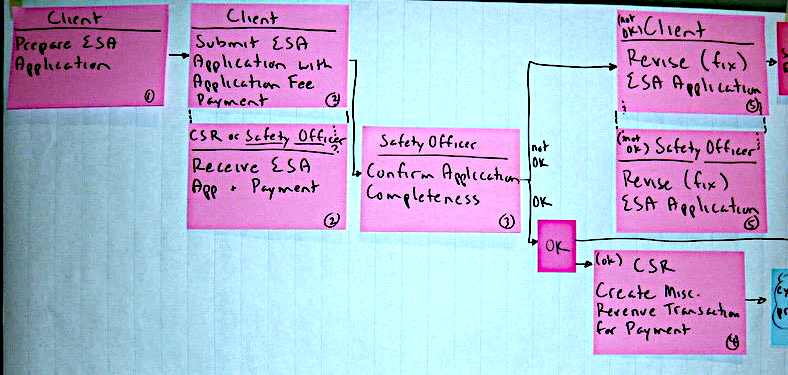 Client
Prepare ESA
Application
1
Client
Submit ESA
Application with
Application Fee
Payment
2
CSR or Safety Officer?
Receive ESA
App + Payment
2
Safety Officer
Confirm Application
Completeness
3
not
OK
OK
OK
(not
OK) Client
Revise (fix)
ESA Application
5
(not
OK) Safety Officer
Revise (fix)
ESA Application
5
(ok) CSR
Create Misc.
Revenue Transaction
for Payment
4